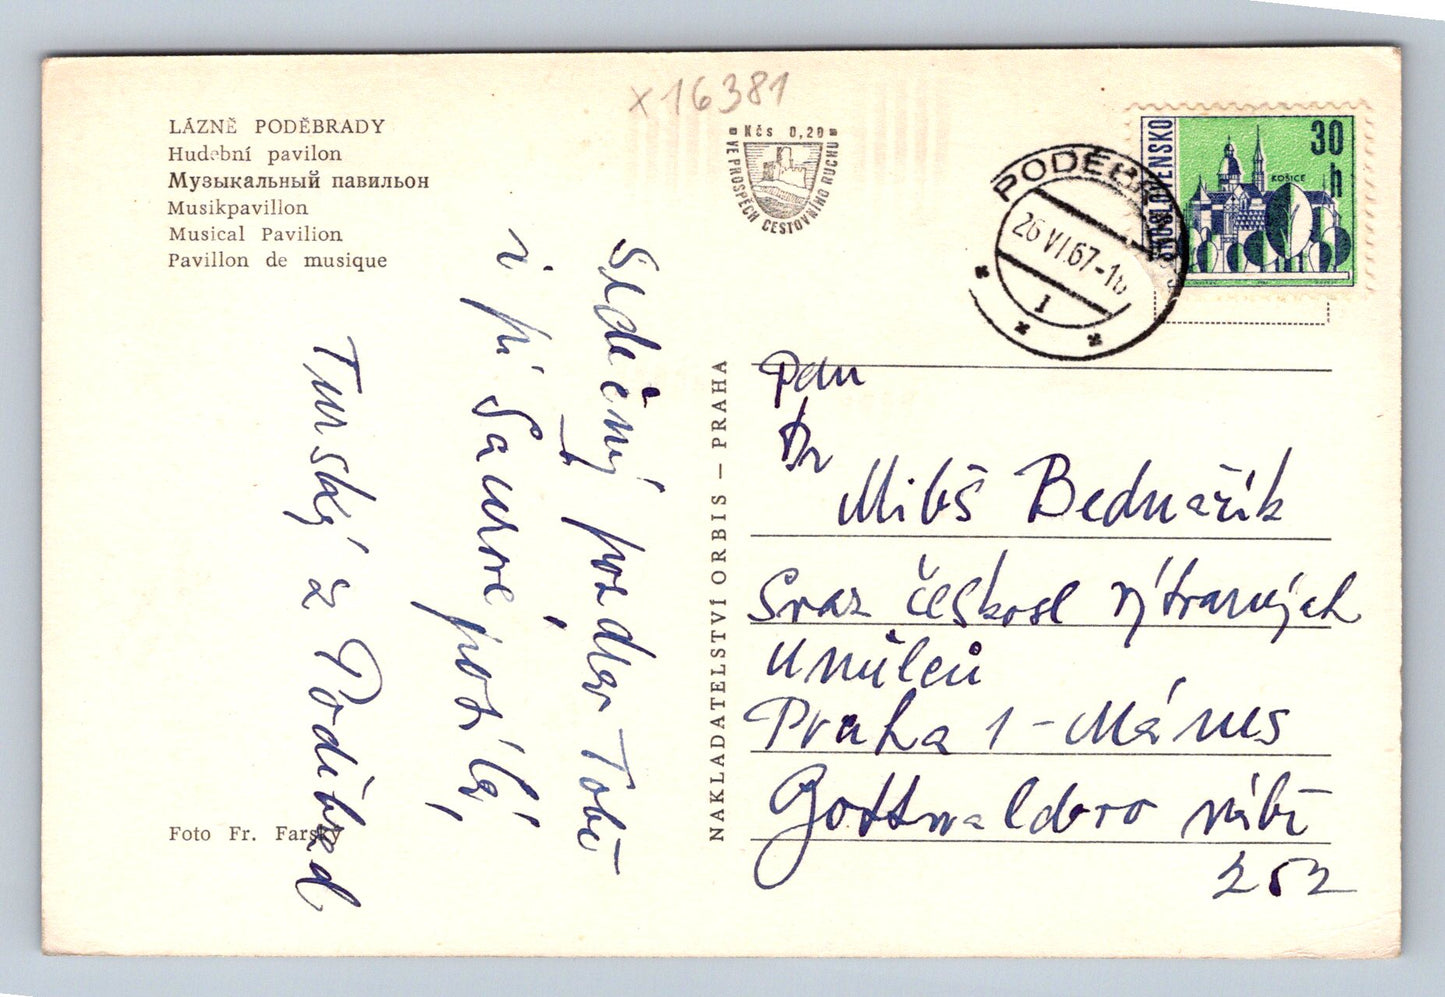 x16381
LÁZNĚ PODĚBRADY
Hudební pavilon
Музыкальный павильон
Musikpavillon
Musical Pavilion
Pavillon de musique
Kčs 0,20
VE PROSPĚCH CESTOVNÍHO RUCHU
PODĚBRA
26 VI.67-16
1
ČESKOSLOVENSKO
30 h
KOŠICE
Srdečný pozdrav Tobě
i pí
posílá,
Turský z Poděbrad
NAKLADATELSTVÍ ORBIS – PRAHA
Pan
Dr
Miloš Bednařík
Svaz českosl výtvarných
umělců
Praha 1 - Mánes
Gottwaldovo nábř
252
Foto Fr. Farský